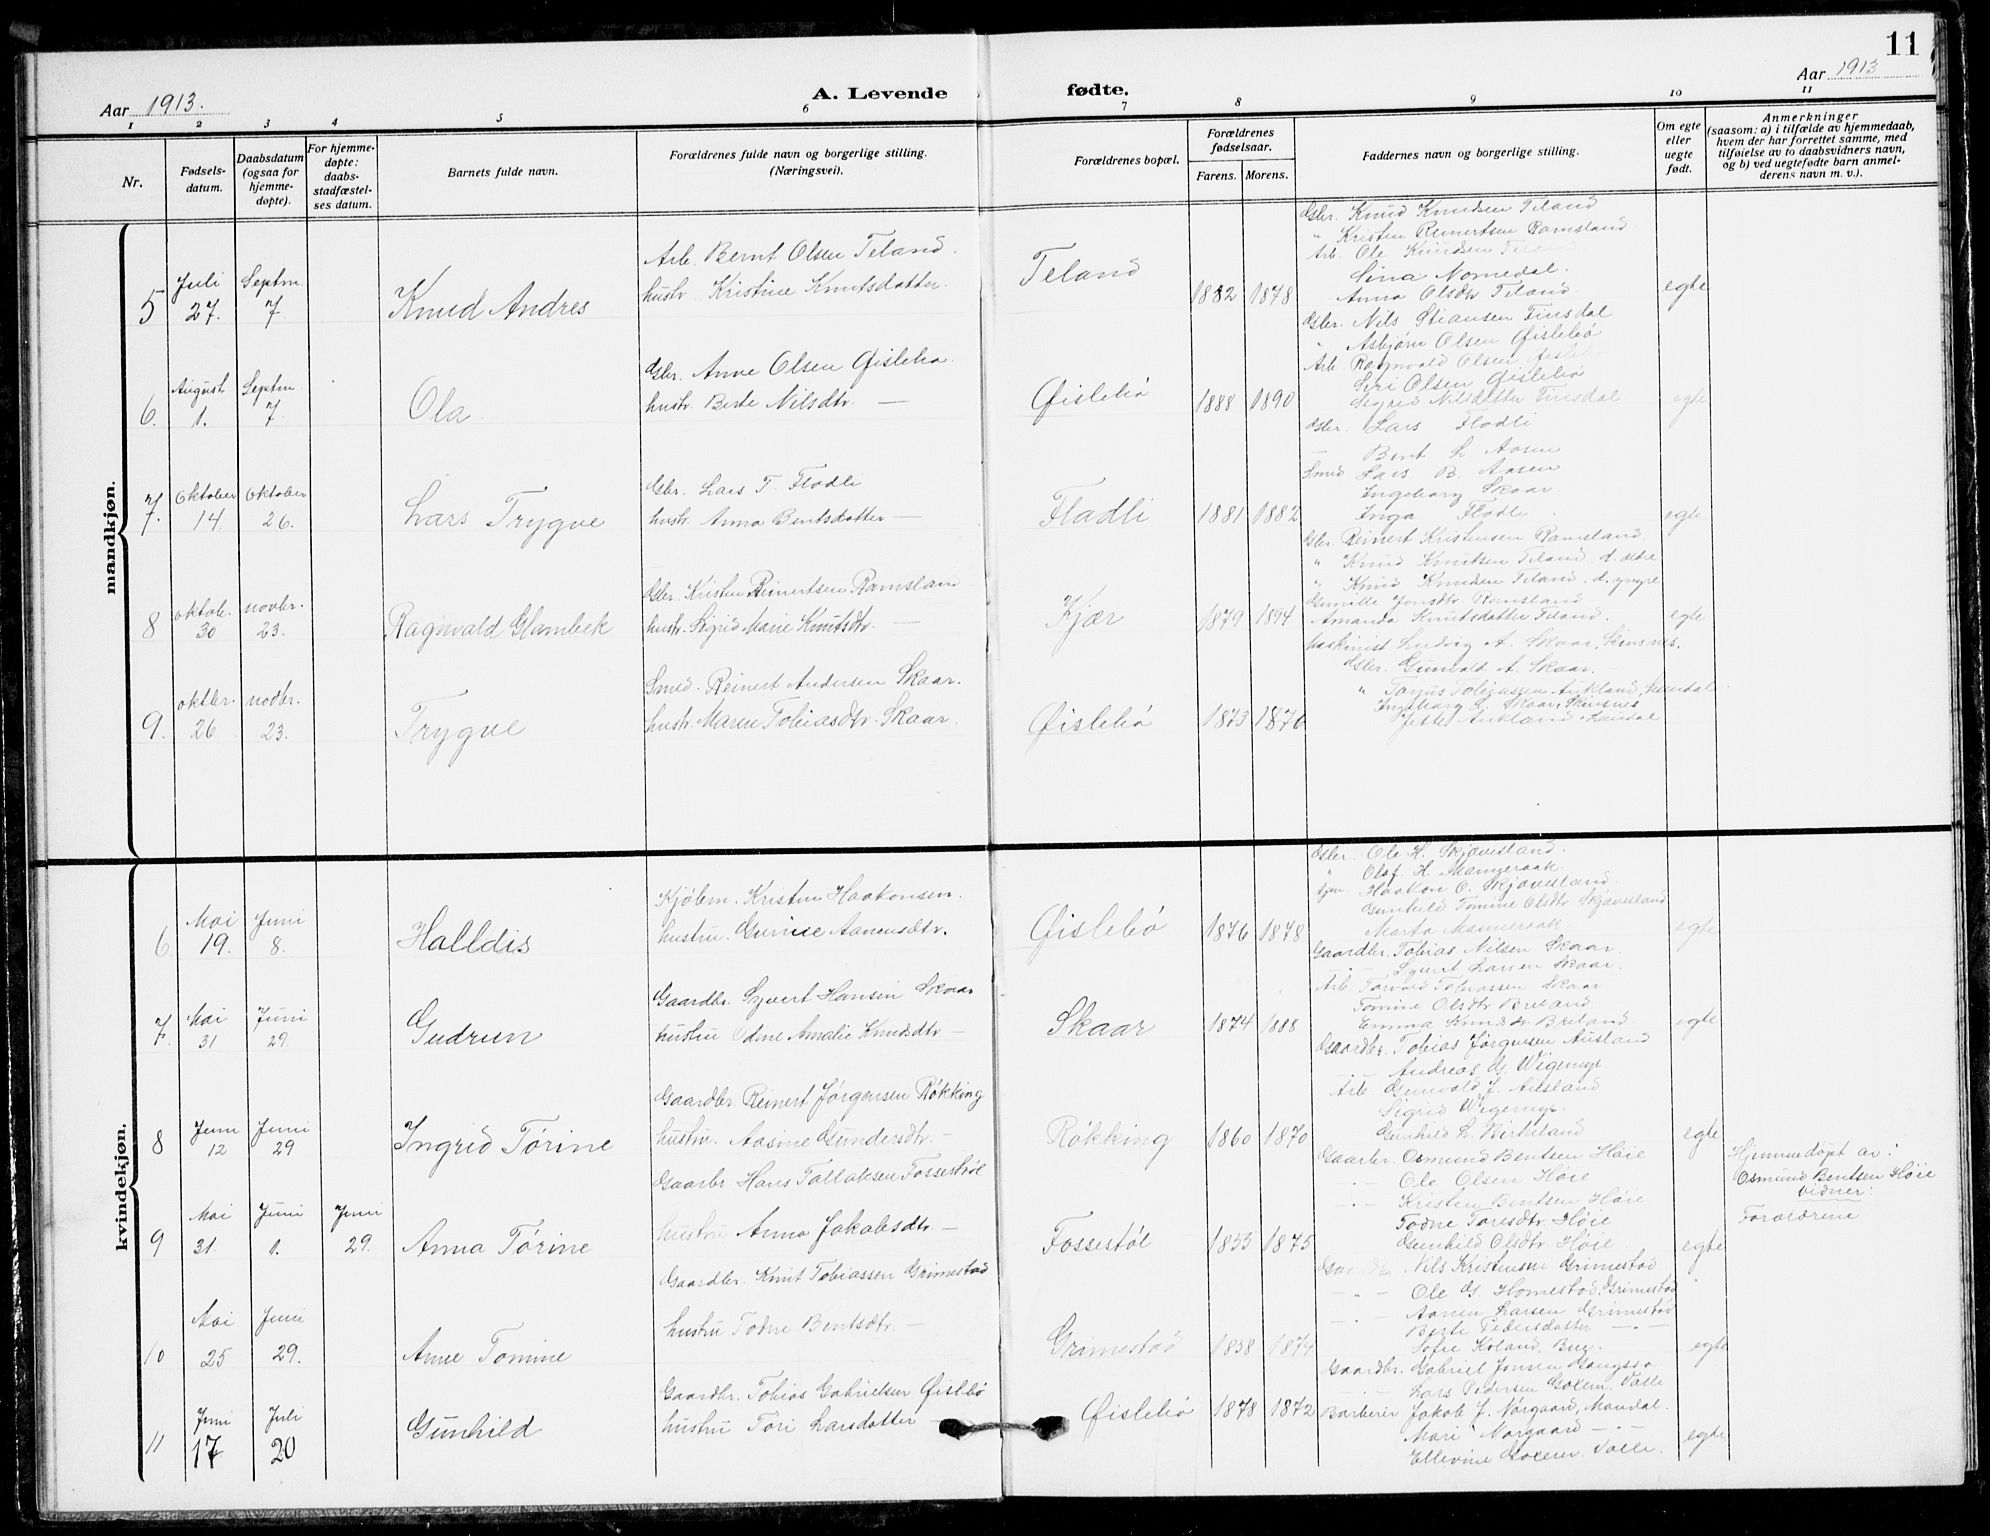 11
Aar 1913.
A. Levende
fødte.
Aar 1913
1 2 3 4 5 6 7 8 9 10 11
Nr.
Fødsels-
datum.
Daabsdatum
(ogsaa for
hjemme-
døpte).
For hjemme-
døpte:
daabs-
stadfæstel-
ses datum.
Barnets fulde navn.
Forældrenes fulde navn og borgerlige stilling.
(Næringsvei).
Forældrenes bopæl.
Forældrenes
fødselsaar.
Farens. Morens.
Faddernes navn og borgerlige stilling.
Om egte
eller
uegte
født.
Anmerkninger
(saasom: a) i tilfælde av hjemmedaab,
hvem der har forrettet samme, med
tilføielse av to daabsvidners navn,
og b) ved uegtefødte barn anmel-
derens navn m. v.).
mandkjøn.
5
Juli
27.
Septm.
7
Knud Andres
Arb. Bernt Olsen Teland.
hustr. Kristine Knutsdatter.
Teland
1882 1878
Gbr. Knud Knudsen Teland
" Kristen Reinertsen Ramsland
Arb. Ole Knudsen Teland
Sina Nomedal.
Anna Olsdtr Teland
egte
6.
August
1.
Septm
7.
Ola.
Gbr. Anve Olsen Øislebø.
hustr. Berte Nilsdtr. —
Øislebø
1888 1890
Gbr. Nils Stiansen Finsdal
" Asbjørn Olsen Øislebø
Arb. Ragnvald Olsen
Siri Olsen Øislebø
Sigrid Nilsdatter Finsdal.
egte
7.
Oktober
14
Oktober
26.
Lars Trygve
Gbr. Lars T. Flodli
hustr. Anna Bentsdatter —
Fladli
1881 1882
Gbr. Lars Flodli
Bent L. Aasen
Smed Lars B. Aasen
Ingeborg Skaar.
Inga Flodli.
egte
8
oktob.
30
novbr.
23.
Ragnvald Glambek
Gbr. Kristen Reinertsen Ramsland
hustr. Sigrid Marie Knutsdtr. —
Kjær
1879 1894
Gbr. Reinert Kristensen Ramsland.
" Knud Knutsen Teland d. eldre
" Knud Knudsen Teland. d. yngre
Gunille Jonsdtr Ramsland
Amanda Knutsdatter Teland.
egte
9.
oktbr.
26
novbr.
23.
Trygve
Smed. Reinert Andersen Skaar.
hustr. Maren Tobiasdtr. Skaar.
Øislebø
1873 1876
Maskinist Ludvig A. Skaar, Skinsnes.
Gbr. Gunvald A. Skaar. —
" Torjus Tobiassen Aukland,
Ingeborg L. Skaar, Skinsnes
Jette Aukland
kvindekjøn.
6
Mai
19.
Juni
8.
Halldis
Kjøbm. Kristen Haakonsen.
hustru. Gurine Aanensdtr.
Øislebø
1876 1878
Gbr. Ole H. Skjævesland.
" Olaf H. Manneraak.
Haakon O. Skjævesland.
Gunhild Tomine Olsdtr Skjævesland
Marta Manneraak
egte
7.
Mai
31
Juni
29.
Gudrun
Gaardbr. Syvert Hansen Skaar
hustru Odine Amalie Knudsdtr. —
Skaar
1874 1888
Gaardbr. Tobias Nilsen Skaar
—"— Syvert Larsen Skaar.
Arb Torvald Tobiassen Skaar
Tomine Olsdtr Breland
Emma Knudsdtr Breland
egte
8
Juni
12
Juni
29
Ingrid Törine
Gaardbr. Reinert Jørgensen Røkking
hustru. Aasine Gundersdtr. —
Røkking
1860 1870
Gaardbr. Tobias Jørgensen Ausland
—"— Andreas G. Wigemyr
Arb. Gunvald J. Ausland
Sigrid Wigemyr.
Gunhild L. Birkeland
egte
9
Mai
31.
Juni
1.
Juni
29.
Anna Törine
Gaarbr. Hans Tallaksen Fossestøl
hustru Anna Jakobsdtr. —
Fossestøl
1853 1875
Gaarbr. Osmund Bentsen Høie
—"— Ole Olsen Høie
—"— Kristen Bentsen Høie
Todne Toresdtr. Høie
Gunhild Olsdtr. Høie
egte
Hjemmedøpt av:
Osmund Bentsen Høie
vidner:
Forældrene
10
Mai
25
Juni
29.
Anne Tomine
Gaardbr. Knut Tobiassen Grimestad
hustru Todne Bentsdtr. —
Grimestad
1858 1874
Gaardbr Nils Kristensen Grimestad
—"— Ole G. Homestad, Grimestad
—"— Aanen Larsen Grimestad
Berte Pedersdatter —"—
Sofie Koland, Bue.
egte
11
Juni
17
Juli
20
Gunhild
Gaardbr. Tobias Gabrielsen Øislebø
hustru Tori Larsdatter —
Øislebø
1878 1872
Gaardbr. Gabriel Jonsen Gangsso
—"— Lars Pedersen Goxem, Valle
Barberer Jakob J. Nørgaard, Mandal.
Mari Nørgaard —"—
Ellevine Goxem Valle.
egte